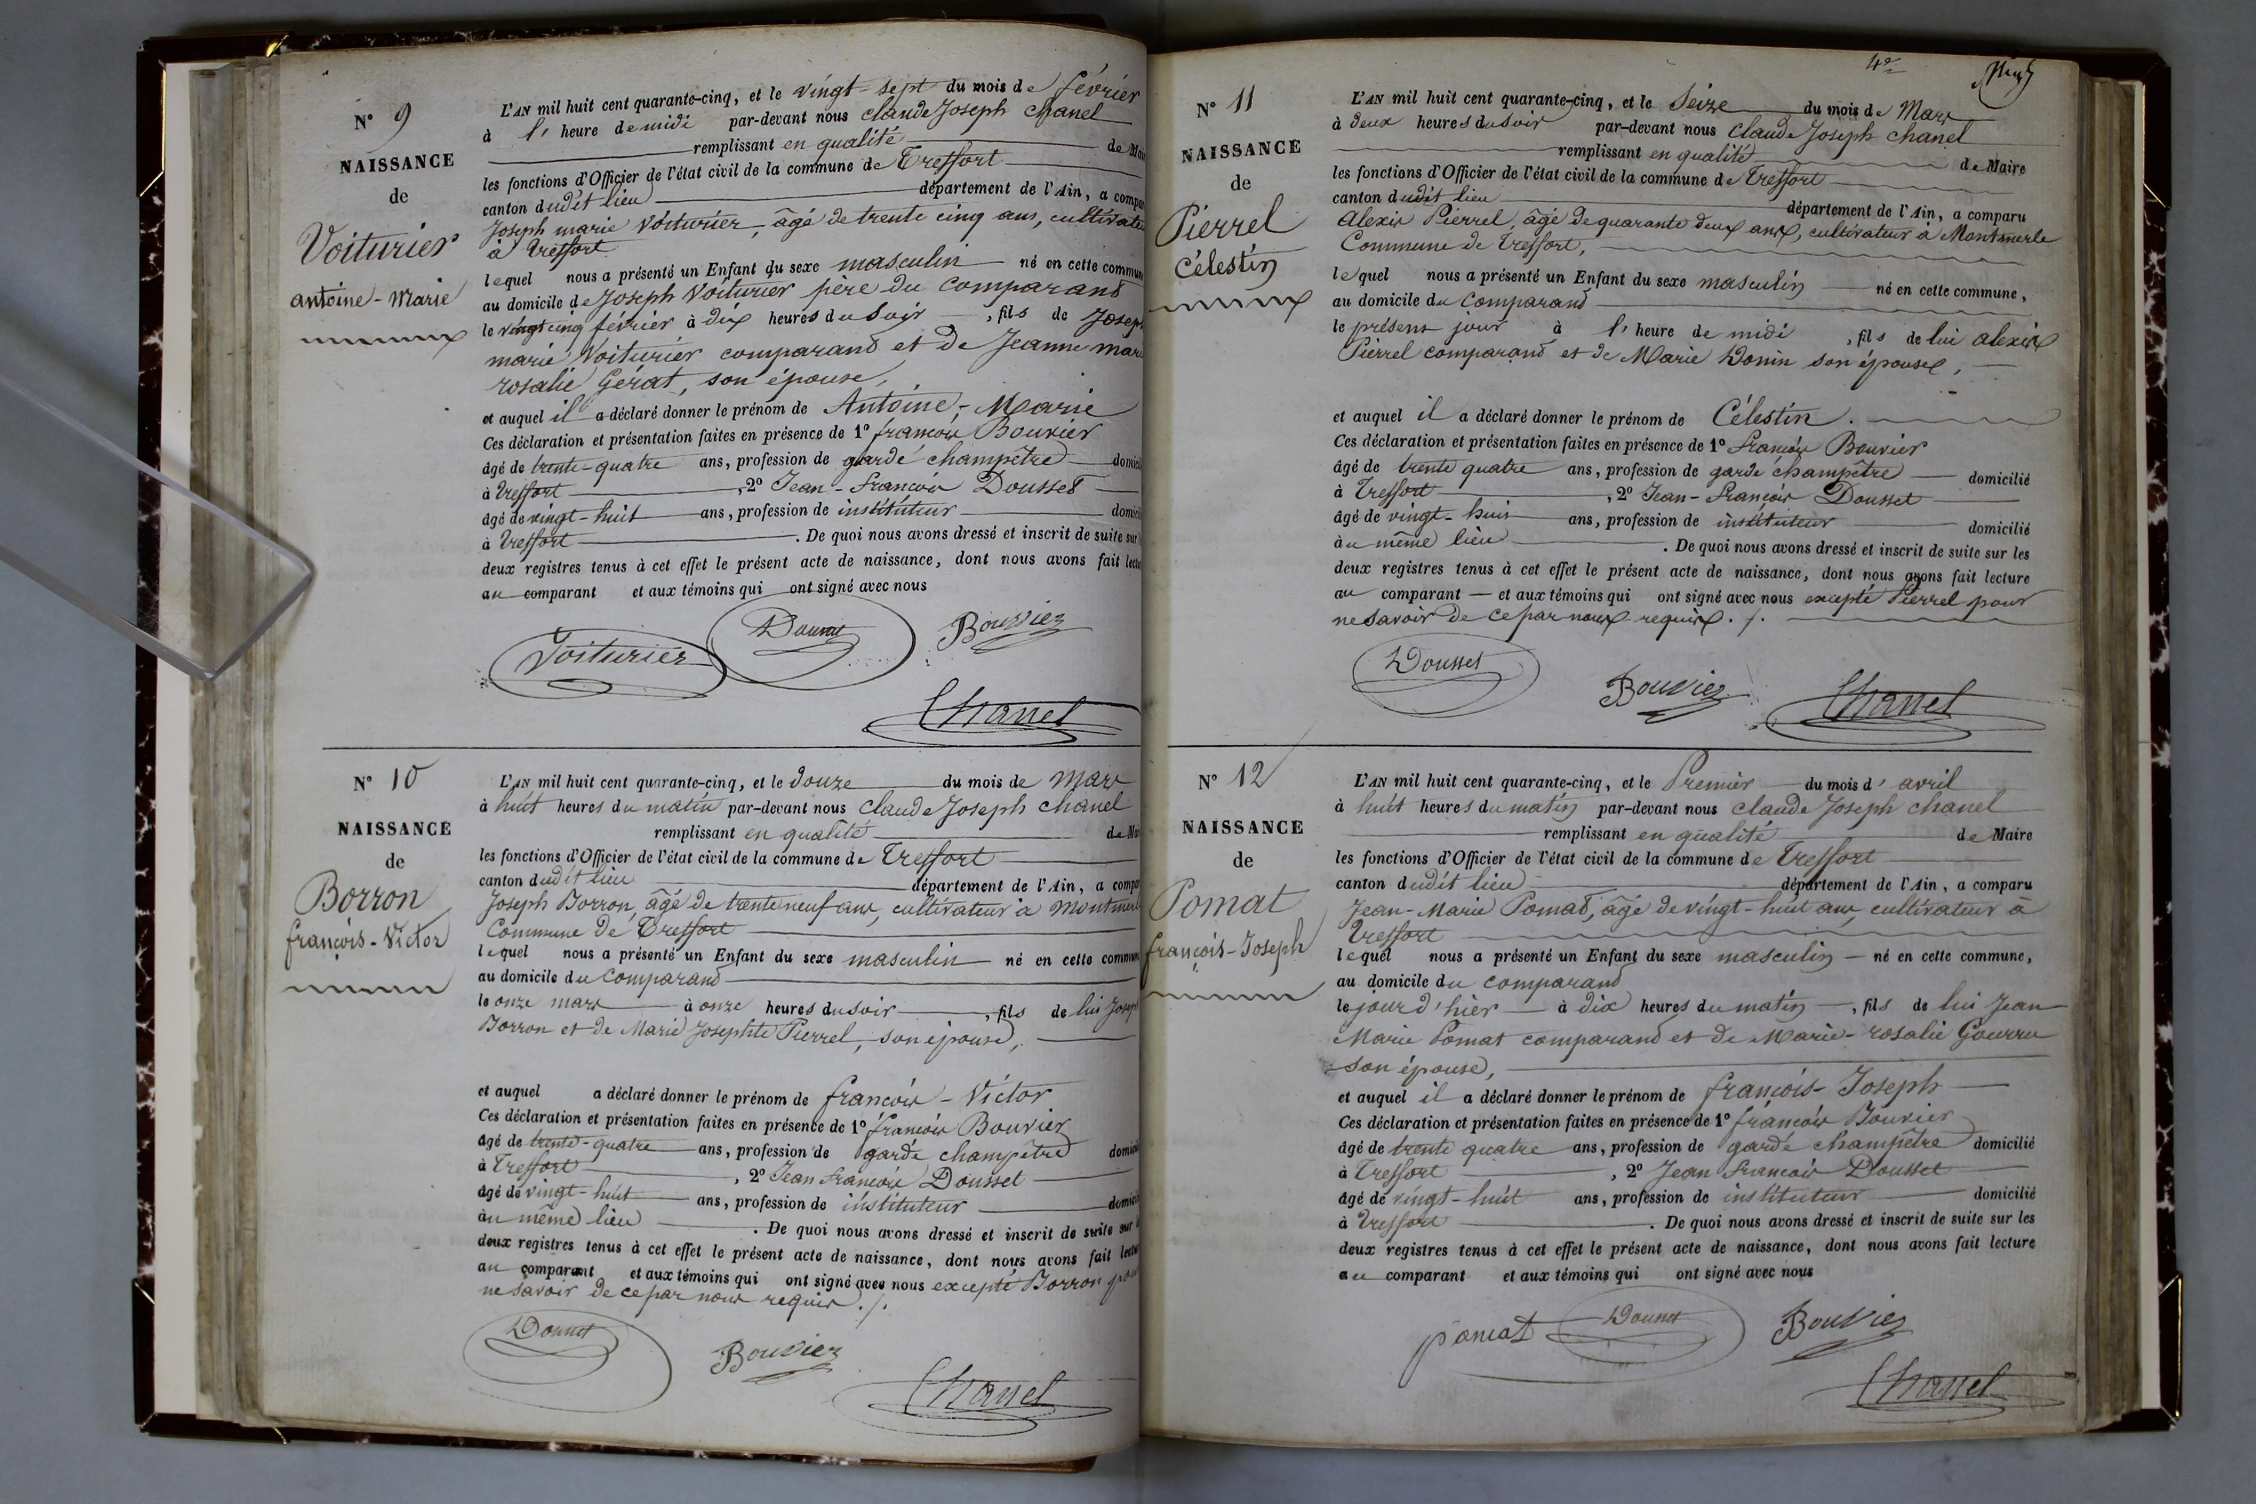 N° 9
NAISSANCE
de
Voiturier
antoine-Marie
L'AN mil huit cent quarante-cinq, et le vingt-sept du mois de février
à l' heure de midi par-devant nous Claude Joseph Chanel
remplissant en qualité de Mai
les fonctions d'Officier de l'état civil de la commune de Treffort
canton dudit lieu département de l'Ain, a compa
Joseph marie Voiturier, âgé de trente cinq ans, cultivate
à Treffort
lequel nous a présenté un Enfant du sexe masculin né en cette commun
au domicile de Joseph Voiturier père du comparand
le vingt cinq février à dix heures du soir, fils de Josep
marie Voiturier comparand et de Jeanne mari
rosalie Gérat, son épouse,
et auquel il a déclaré donner le prénom de Antoine-Marie
Ces déclaration et présentation faites en présence de 1° françois Bouvier
âgé de trente-quatre ans, profession de garde champêtre domici
à Treffort, 2° Jean-françois Dousset
âgé de vingt-huit ans, profession de instituteur domici
à Treffort. De quoi nous avons dressé et inscrit de suite sur
deux registres tenus à cet effet le présent acte de naissance, dont nous avons fait lectu
au comparant et aux témoins qui ont signé avec nous
Voiturier Dousset Bouvier
Chanel
N° 10
NAISSANCE
de
Borron
françois-Victor
L'AN mil huit cent quarante-cinq, et le douze du mois de mars
à huit heures du matin par-devant nous Claude Joseph Chanel
remplissant en qualité de Mai
les fonctions d'Officier de l'état civil de la commune de Treffort
canton dudit lieu département de l'Ain, a compa
Joseph Borron, âgé de trente neuf ans, cultivateur à Montmerle
Commune de Treffort
lequel nous a présenté un Enfant du sexe masculin né en cette commun
au domicile du comparand
le onze mars à onze heures du soir, fils de lui Joseph
Borron et de Marie Josephte Pierrel, son épouse,
et auquel a déclaré donner le prénom de françois-Victor
Ces déclaration et présentation faites en présence de 1° françois Bouvier
âgé de trente-quatre ans, profession de garde champêtre domici
à Treffort, 2° Jean françois Dousset
âgé de vingt-huit ans, profession de instituteur domici
au même lieu. De quoi nous avons dressé et inscrit de suite sur
deux registres tenus à cet effet le présent acte de naissance, dont nous avons fait lectu
au comparant et aux témoins qui ont signé avec nous excepté Borron pour
ne savoir de ce par nous requis./.
Dousset Bouvier
Chanel
4e
N° 11
NAISSANCE
de
Pierrel
Célestin
L'AN mil huit cent quarante-cinq, et le Seize du mois de Mars
à deux heures du soir par-devant nous Claude Joseph Chanel
remplissant en qualité de Maire
les fonctions d'Officier de l'état civil de la commune de Treffort
canton dudit lieu département de l'Ain, a comparu
Alexis Pierrel, âgé de quarante deux ans, cultivateur à Montmerle
Commune de Treffort,
lequel nous a présenté un Enfant du sexe masculin né en cette commune,
au domicile du comparand
le présent jour à l' heure de midi, fils de lui alexis
Pierrel comparand et de Marie Donin son épouse,
et auquel il a déclaré donner le prénom de Célestin.
Ces déclaration et présentation faites en présence de 1° françois Bouvier
âgé de trente quatre ans, profession de garde champêtre domicilié
à Treffort, 2° Jean-françois Dousset
âgé de vingt-huit ans, profession de instituteur domicilié
au même lieu. De quoi nous avons dressé et inscrit de suite sur les
deux registres tenus à cet effet le présent acte de naissance, dont nous avons fait lecture
au comparant et aux témoins qui ont signé avec nous excepté Pierrel pour
ne savoir de ce par nous requis./.
Dousset Bouvier Chanel
N° 12
NAISSANCE
de
Pomat
françois-Joseph
L'AN mil huit cent quarante-cinq, et le Premier du mois d' avril
à huit heures du matin par-devant nous Claude Joseph Chanel
remplissant en qualité de Maire
les fonctions d'Officier de l'état civil de la commune de Treffort
canton dudit lieu département de l'Ain, a comparu
Jean-Marie Pomat, âgé de vingt-huit ans, cultivateur à
Treffort
lequel nous a présenté un Enfant du sexe masculin né en cette commune,
au domicile du comparand
le jour d'hier à dix heures du matin, fils de lui Jean
Marie Pomat comparand et de Marie-rosalie Gourru
son épouse,
et auquel il a déclaré donner le prénom de françois-Joseph
Ces déclaration et présentation faites en présence de 1° françois Bouvier
âgé de trente quatre ans, profession de garde champêtre domicilié
à Treffort, 2° Jean françois Dousset
âgé de vingt-huit ans, profession de instituteur domicilié
à Treffort. De quoi nous avons dressé et inscrit de suite sur les
deux registres tenus à cet effet le présent acte de naissance, dont nous avons fait lecture
au comparant et aux témoins qui ont signé avec nous
pomat Dousset Bouvier
Chanel